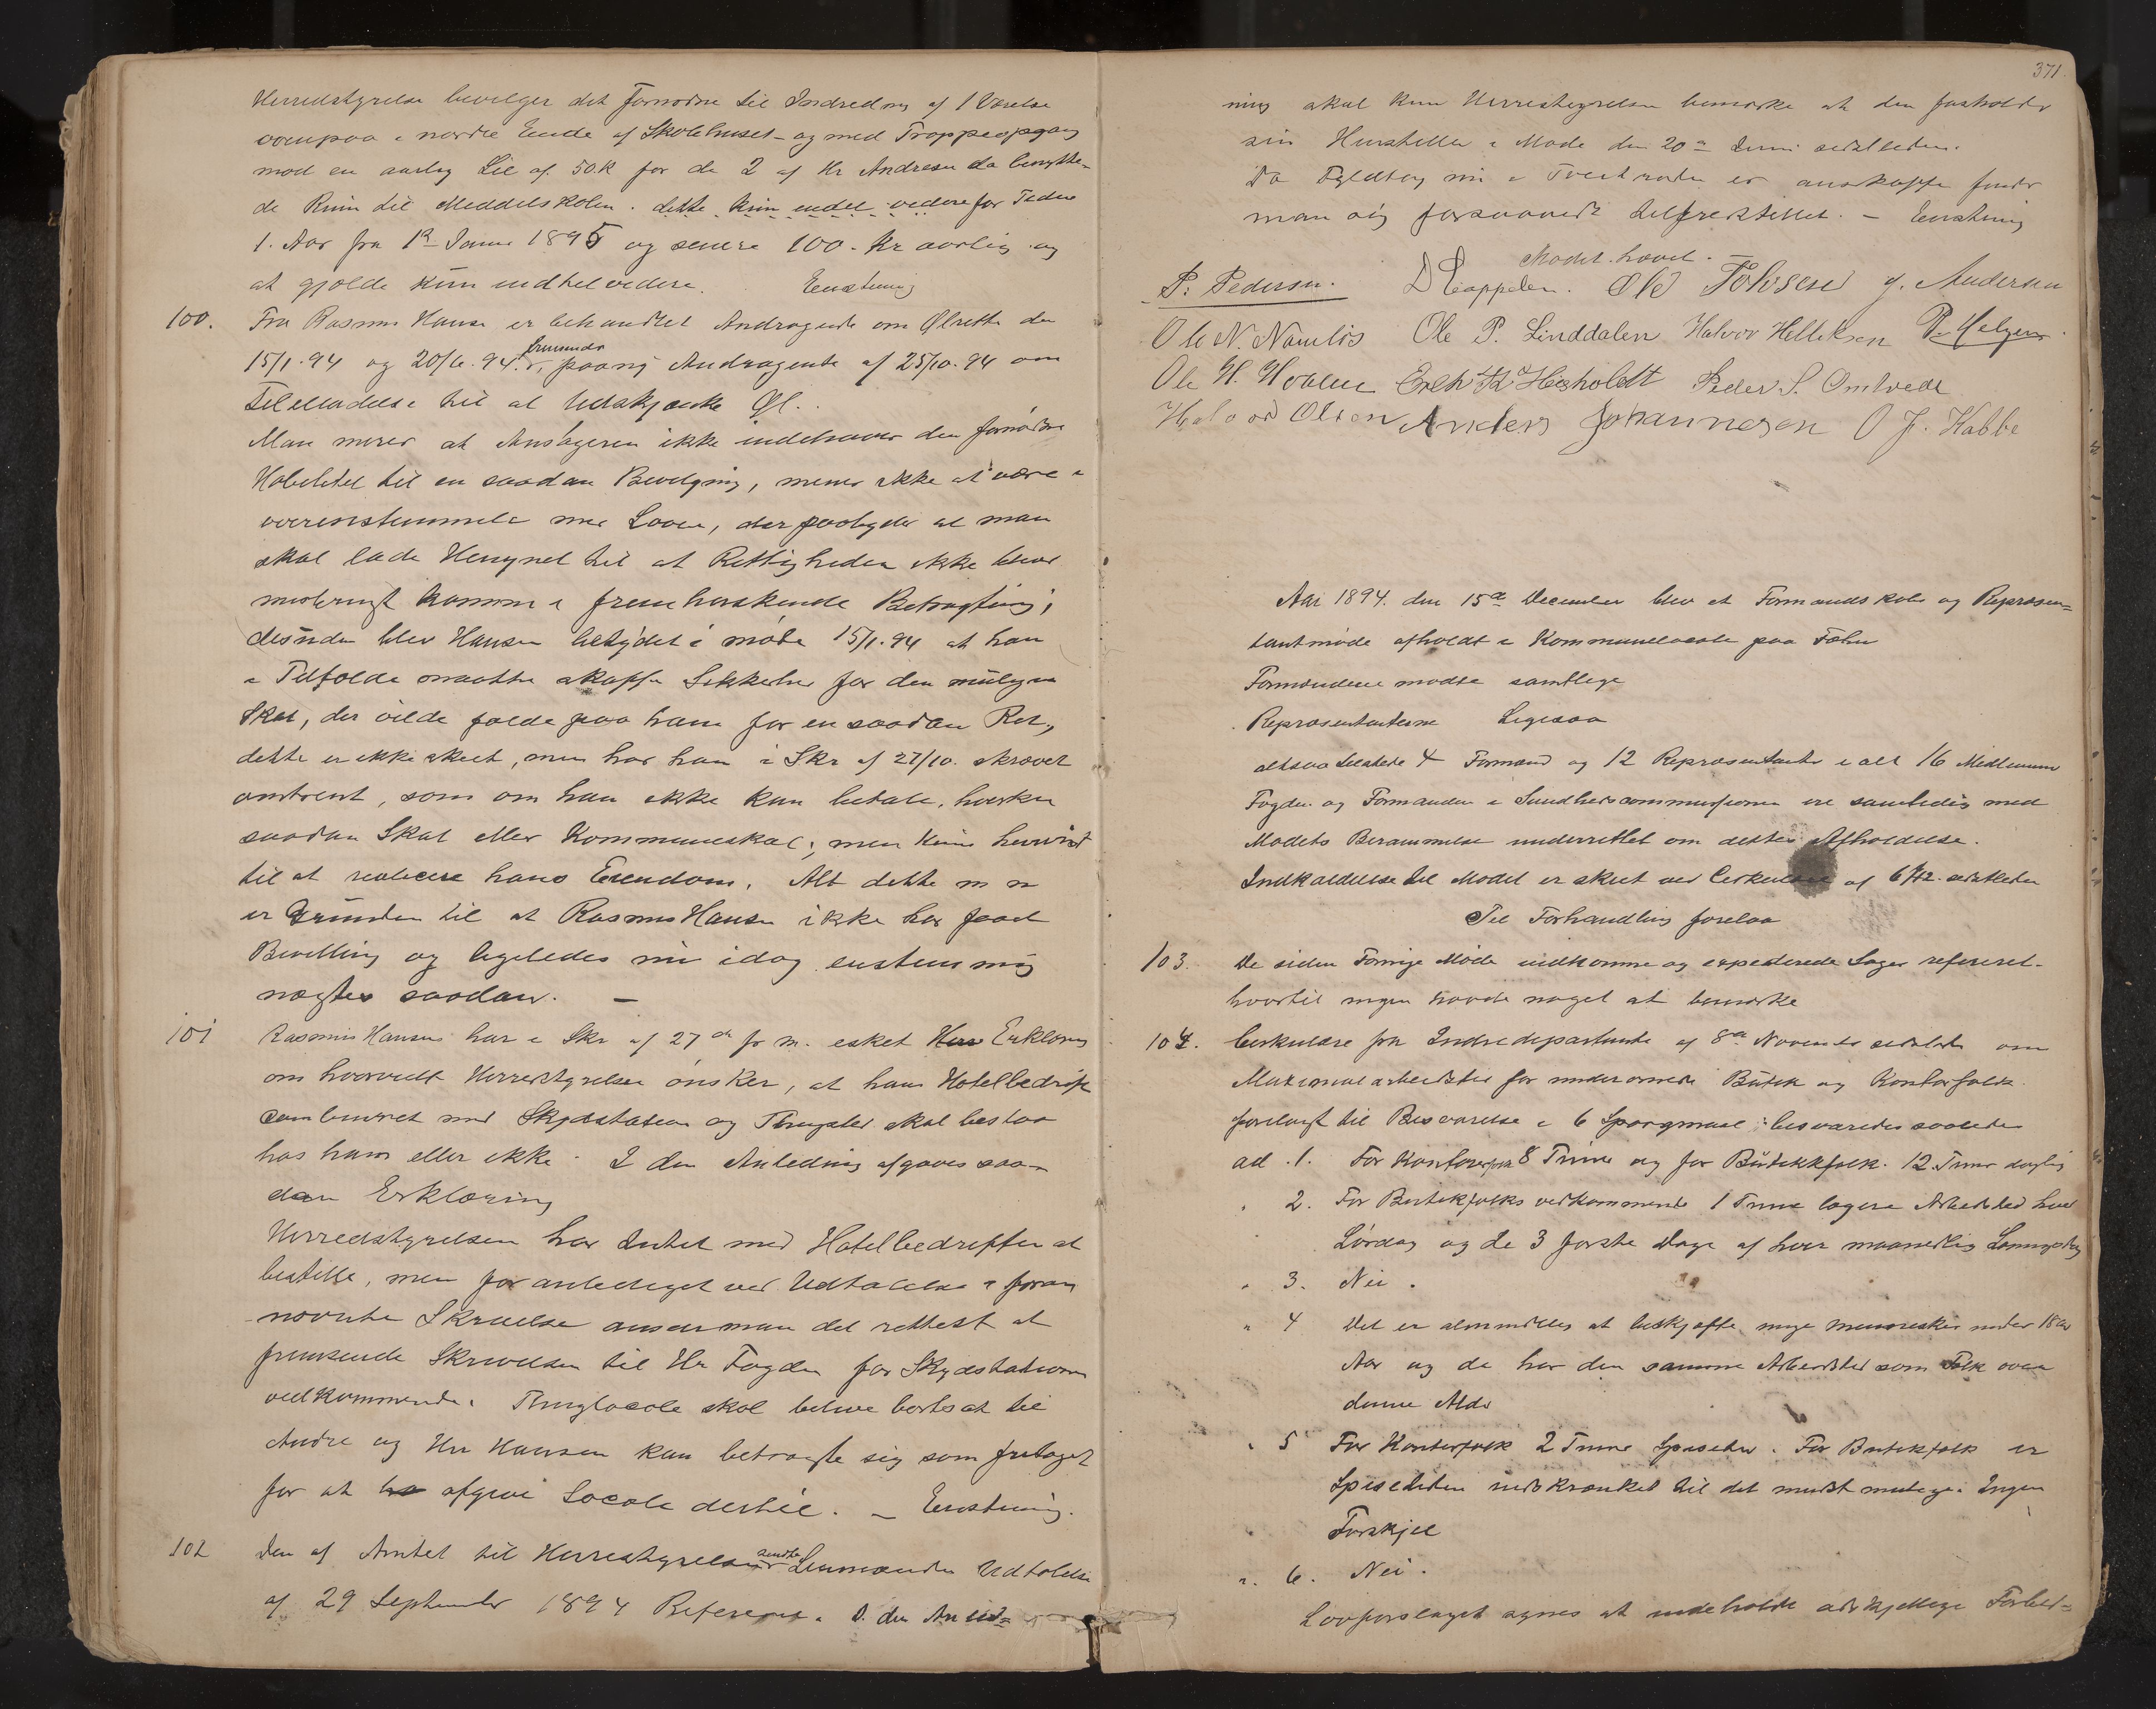 Herredstyrelse bevilger det fornødne til Indredning af 1 Værelse
ovenpaa i nordre Ende af Skolehuset – og med Troppeopgang
mod en aarlig Lie af 50 K for de 2 af Hr Andresen da benytte-
de Rum til Meddelskolen. dette kun indtil videre for Tiden
1. Aar fra 1ste Januar 1895 og senere 100 – Kr aarlig og
at gjælde kun indtil videre. Enstemmig
100. Fra Rasmus Hansen er behandlet Andragende om Ølrette den
15/1.94 og 20/6.94. fremsendes paany Andragende af 25/10.94 om
Tilladelse til at Udskjænke Øl.
Man mener at Ansøgeren ikke indehaver den fornødne
Habilitet til en saadan Bevilgning, mener ikke at være i
overensstemmelse med Loven, der paabyder at man
skal lade Hensynet til at Rettigheden ikke bliver
misbrugt komme i fremherskende Betragtning;
desuden blev Hansen betydet i møde 15/1.94 at han
i Tilfælde maatte skaffe Sikkerhed for den mulige
Skat, der vilde falde paa ham for en saadan Ret,
dette er ikke skeet, men har han i Skr af 27/10. skrevet
omtrent, som om han ikke kan betale, hverken
saadan Skat eller Kommuneskat; men kun henvist
til at realisere hans Eiendom. Alt dette m m
er Grunden til at Rasmus Hansen ikke har faaet
Bevilling og ligeledes nu idag enstemmig
nægtes saadan. –
101 Rasmus Hansen har i Skr af 27de f. m. æsket Erklæring
om hvorvidt Herredstyrelsen ønsker, at hans Hotelbedrift
combineret med Skydsstation og Thingsted skal bestaa
hos ham eller ikke. I den Anledning afgaves saa-
dan Erklæring
Herredstyrelsen har Intet med Hotelbedriften at
bestille, men foranlediget ved Udtalelse i foran
nævnte Skrivelse anser man det rettest at
fremsende Skrivelsen til Hr Fogden for Skydsstationens
vedkommende. Thinglocale skal blive bortsat til
Andre og Hr Hansen kan betragte sig som fritaget
for at afgive Locale dertil. – Enstemmig.
102 Den af Amtet til Herredstyrelsen sendte Lensmandens Udtalelse
af 29 September 1894 Refereres. I den Anled-
371.
ning skal kun Herredstyrelsen bemærke at den fastholder
sin Henstillen i Møde den 20de Juni sidstleden.
Da Fyldtøy nu i er anskaffe finder
man sig forsaavidt tilfredsstillet. – Enstemmig
Mødet hævet. –
P. Pedersen. D Cappelen. Ole Tovsen J. Andersen
Ole N. Næmløs Ole P. Linddalen Halvor Helleksen P. Helgen
Ole H. Hoblen Erik K Hegholdt Peder S. Omtvedt
Halvor Olsen Anders Johannesen O J. Kabbe
Aar 1894. den 15de December blev et Formandskabs og Repræsen-
tantmøde afholdt i Kommunelocale paa Fæhn
Formændene mødte samtlige
Repræsentanterne Ligesaa
altsaa tilstede 4 Formænd og 12 Repræsentanter i alt 16 Medlemmer
Fogden og Formanden i Sundhedscommissionen ere samtidig med
Mødets Berammelse underrettet om dettes Afholdelse.
Indkaldelse til Mødet er skeet ved Cirkulære af 6/12. sidstleden
Til Forhandling forelaa
103. De siden Forrige Møde indkomne og expederede Sager refereret –
hvortil ingen havde noget at bemærke
104. Cirkulære fra Indredepartementet af 8de November sidstleden om
Maximalarbeidstid for underordnede Butik og Kontorfolk
forelagt til Besvarelse i 6 Spørgsmaal: besvaredes saaledes
ad. 1. For Kontorfolk 8 Timer og for Butikkfolk. 12 Timer daglig
" 2. For Butikfolks vedkommende 1 Time længere Arbeidstid hver
Lørdag og de 3 første Dage af hver maanedlig Lønningsdag
" 3. Nei.
" 4 Det er almindelig at beskjæftige unge Mennesker under 18
Aar og de har den samme Arbeidstid som Folk over
denne Alder
" 5 For Kontorfolk 2 Timer Spisetid. For Butikfolk er
Spisetiden indskrænket til det mindst mulige. Ingen
Forskjel
" 6. Nei.
Lovforslaget synes at indeholde adskjellige Forbed-